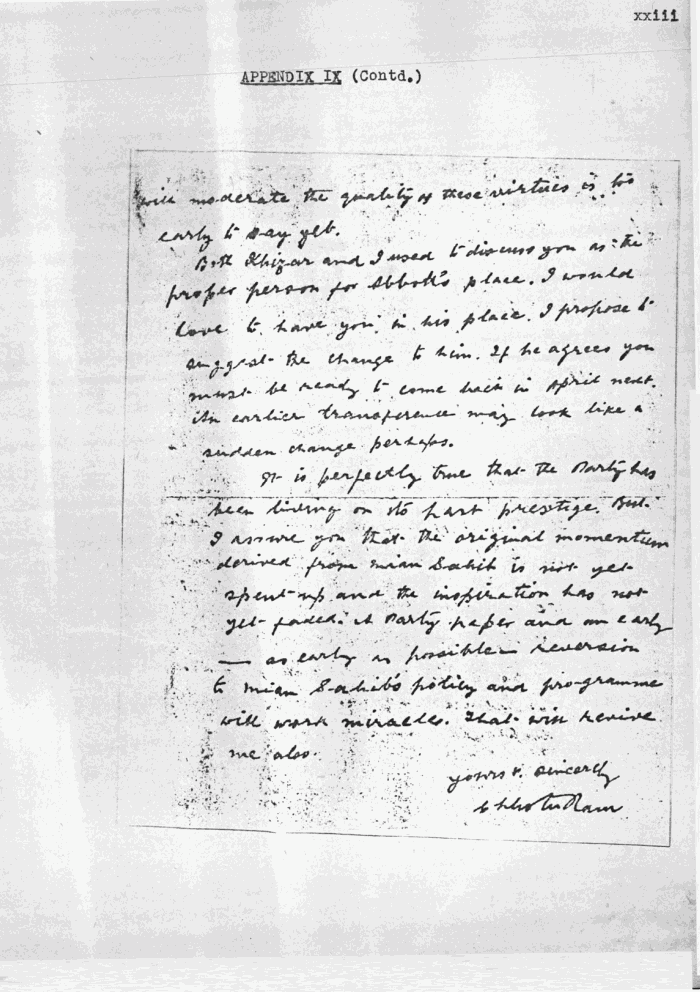 xxiii
APPENDIX IX (Contd.)
will moderate the quality of these virtues is too
early to say yet.
Both Khizar and I used to discuss you as the
proper person for Abbott's place. I would
love to have you in his place. I propose to
suggest the change to him. If he agrees you
must be ready to come back in April next.
An earlier transference may look like a
sudden change perhaps.
It is perfectly true that the Party has
been living on its past prestige. But
I assure you that the original momentum
derived from mian Sahib is not yet
spent-up and the inspiration has not
yet faded. A Party paper and an early
— as early as possible — reversion
to mian Sahib's policy and programme
will work miracles. That will revive
me also.
yours v. sincerely
Chhotu Ram